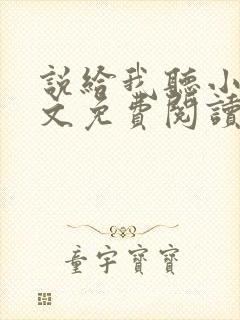 說給我聽小
文免費閱讀
童宇寶寶